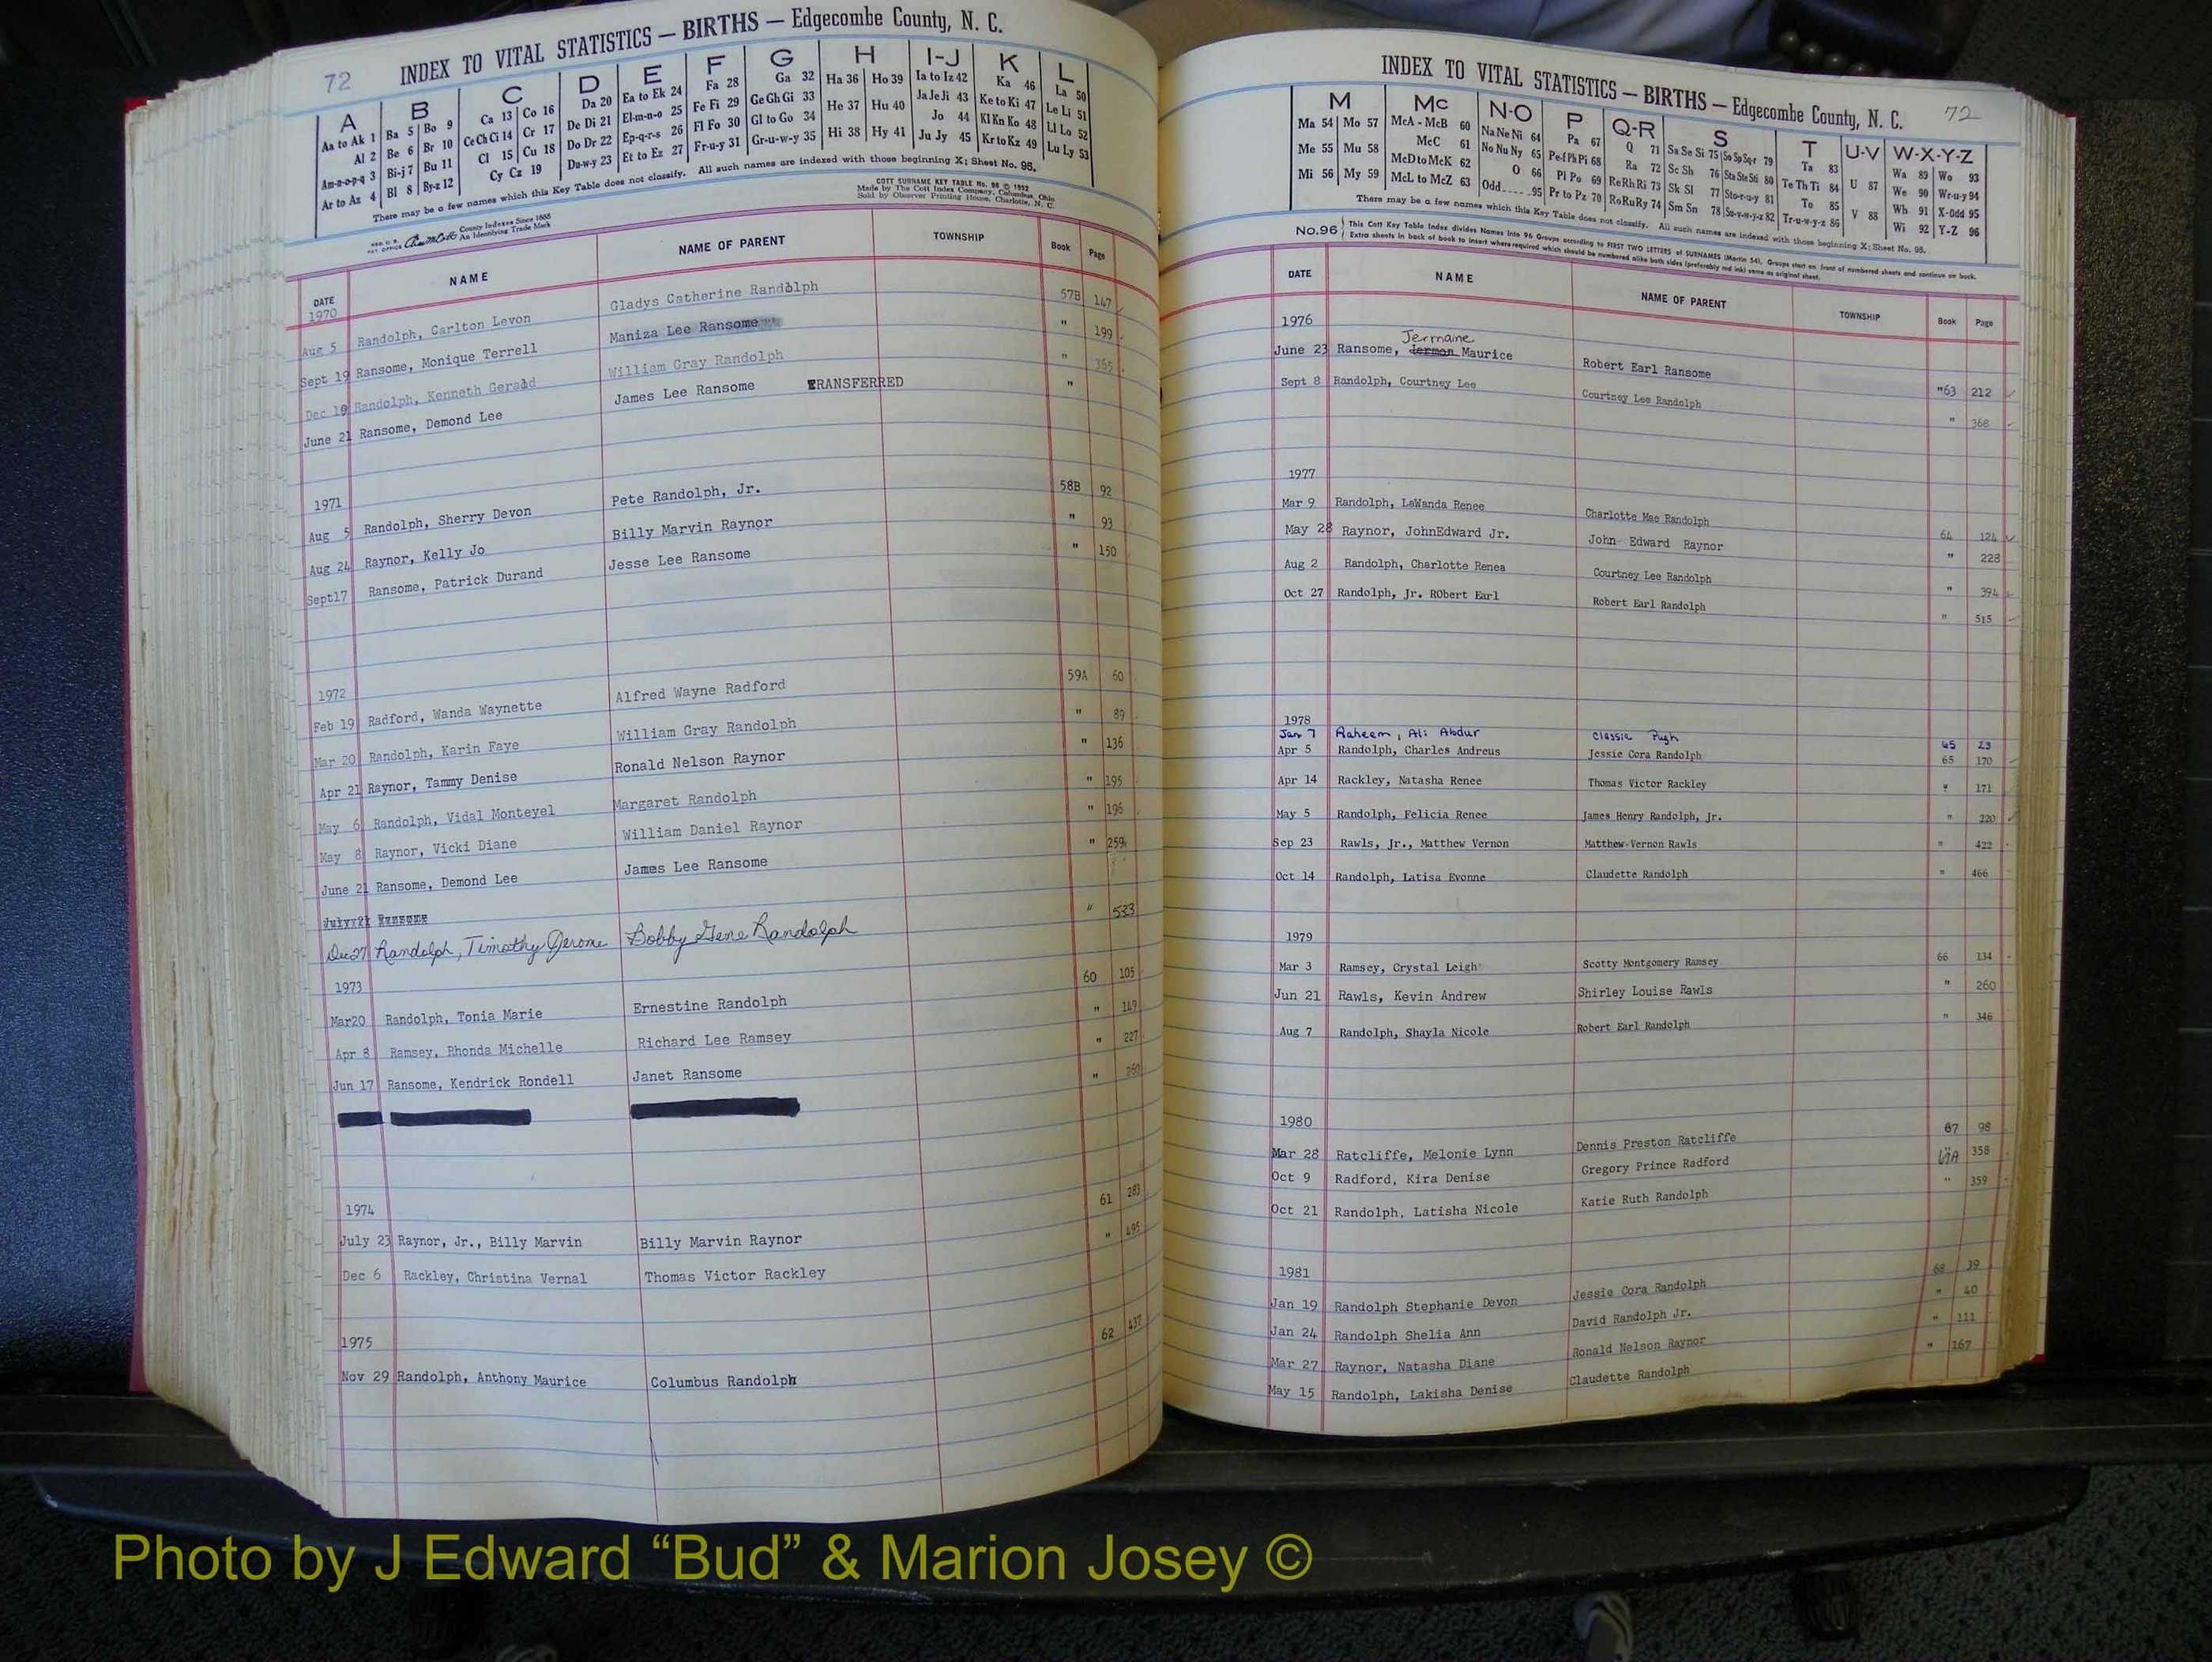 72
INDEX TO VITAL STATISTICS — BIRTHS — Edgecombe County, N. C.
A B C D E F G H I-J K L
Aa to Ak 1 Ba 5 Bo 9 Ca 13 Co 16 Da 20 Ea to Ek 24 Fa 28 Ga 32 Ha 36 Ho 39 Ia to Iz 42 Ka 46 La 50
Al 2 Be 6 Br 10 Ce Ch Ci 14 Cr 17 De Di 21 El-m-n-o 25 Fe Fi 29 Ge Gh Gi 33 He 37 Hu 40 Ja Je Ji 43 Ke to Ki 47 Le Li 51
Am-n-o-p-q 3 Bi-j 7 Bu 11 Cl 15 Cu 18 Do Dr 22 Ep-q-r-s 26 Fl Fo 30 Gl to Go 34 Hi 38 Hy 41 Jo 44 Kl Kn Ko 48 Ll Lo 52
Ar to Az 4 Bl 8 By-z 12 Cy Cz 19 Du-w-y 23 Et to Ez 27 Fr-u-y 31 Gr-u-w-y 35 Ju Jy 45 Kr to Kz 49 Lu Ly 53
There may be a few names which this Key Table does not classify. All such names are indexed with those beginning X; Sheet No. 95.
County Indexes Since 1888
An Identifying Trade Mark
COTT SURNAME KEY TABLE No. 96 © 1952
Made by The Cott Index Company, Columbus, Ohio
Sold by Observer Printing House, Charlotte, N. C.
DATE NAME NAME OF PARENT TOWNSHIP Book Page
1970
Aug 5 Randolph, Carlton Levon Gladys Catherine Randolph 57B 147
Sept 19 Ransome, Monique Terrell Maniza Lee Ransome " 199
Dec 10 Randolph, Kenneth Gerald William Gray Randolph " 365
June 21 Ransome, Demond Lee James Lee Ransome TRANSFERRED "
1971
Aug 5 Randolph, Sherry Devon Pete Randolph, Jr. 58B 92
Aug 24 Raynor, Kelly Jo Billy Marvin Raynor " 93
Sept17 Ransome, Patrick Durand Jesse Lee Ransome " 150
1972
Feb 19 Radford, Wanda Waynette Alfred Wayne Radford 59A 60
Mar 20 Randolph, Karin Faye William Gray Randolph " 89
Apr 21 Raynor, Tammy Denise Ronald Nelson Raynor " 136
May 6 Randolph, Vidal Monteyel Margaret Randolph " 195
May 8 Raynor, Vicki Diane William Daniel Raynor " 196
June 21 Ransome, Demond Lee James Lee Ransome " 259
Ransome
Dec 27 Randolph, Timothy Jerome Bobby Gene Randolph " 533
1973
Mar20 Randolph, Tonia Marie Ernestine Randolph 60 105
Apr 8 Ramsey, Rhonda Michelle Richard Lee Ramsey " 149
Jun 17 Ransome, Kendrick Rondell Janet Ransome " 227
" 260
1974
July 23 Raynor, Jr., Billy Marvin Billy Marvin Raynor 61 283
Dec 6 Rackley, Christina Vernal Thomas Victor Rackley " 495
1975
Nov 29 Randolph, Anthony Maurice Columbus Randolph 62 437
INDEX TO VITAL STATISTICS — BIRTHS — Edgecombe County, N. C. 72
M Mc N-O P Q-R S T U-V W-X-Y-Z
Ma 54 Mo 57 McA - McB 60 Na Ne Ni 64 Pa 67 Q 71 Sa Se Si 75 So Sp Sq-r 79 Ta 83 Wa 89 Wo 93
Me 55 Mu 58 McC 61 No Nu Ny 65 Pe-f Ph Pi 68 Ra 72 Sc Sh 76 Sta Ste Sti 80 Te Th Ti 84 U 87 We 90 Wr-u-y 94
Mi 56 My 59 McD to McK 62 O 66 Pl Po 69 Re Rh Ri 73 Sk Sl 77 Sto-r-u-y 81 To 85 V 88 Wh 91 X-Odd 95
McL to McZ 63 Odd 95 Pr to Pz 70 Ro Ru Ry 74 Sm Sn 78 Su-v-w-y-z 82 Tr-u-w-y-z 86 Wi 92 Y-Z 96
There may be a few names which this Key Table does not classify. All such names are indexed with those beginning X; Sheet No. 95.
No.96 This Cott Key Table Index divides Names into 96 Groups according to FIRST TWO LETTERS of SURNAMES (Martin 54). Groups start on front of numbered sheets and continue on back.
Extra sheets in back of book to insert where required which should be numbered alike both sides (preferably red ink) same as original sheet.
DATE NAME NAME OF PARENT TOWNSHIP Book Page
1976
Jermaine
June 23 Ransome, Jermon Maurice Robert Earl Ransome "63 212
Sept 8 Randolph, Courtney Lee Courtney Lee Randolph " 368
1977
Mar 9 Randolph, LaWanda Renee Charlotte Mae Randolph 64 124
May 28 Raynor, JohnEdward Jr. John Edward Raynor " 228
Aug 2 Randolph, Charlotte Renea Courtney Lee Randolph " 394
Oct 27 Randolph, Jr. RObert Earl Robert Earl Randolph " 515
1978
Jan 7 Raheem, Ali Abdur Classie Pugh 65 23
Apr 5 Randolph, Charles Andreus Jessie Cora Randolph 65 170
Apr 14 Rackley, Natasha Renee Thomas Victor Rackley " 171
May 5 Randolph, Felicia Renee James Henry Randolph, Jr. " 220
Sep 23 Rawls, Jr., Matthew Vernon Matthew Vernon Rawls " 422
Oct 14 Randolph, Latisa Evonne Claudette Randolph " 466
1979
Mar 3 Ramsey, Crystal Leigh Scotty Montgomery Ramsey 66 134
Jun 21 Rawls, Kevin Andrew Shirley Louise Rawls " 260
Aug 7 Randolph, Shayla Nicole Robert Earl Randolph " 346
1980
Mar 28 Ratcliffe, Melonie Lynn Dennis Preston Ratcliffe 67 98
Oct 9 Radford, Kira Denise Gregory Prince Radford 358
Oct 21 Randolph, Latisha Nicole Katie Ruth Randolph " 359
1981
Jan 19 Randolph Stephanie Devon Jessie Cora Randolph 68 39
Jan 24 Randolph Shelia Ann David Randolph Jr. " 40
Mar 27 Raynor, Natasha Diane Ronald Nelson Raynor " 111
May 15 Randolph, Lakisha Denise Claudette Randolph " 167
Photo by J Edward “Bud” & Marion Josey ©